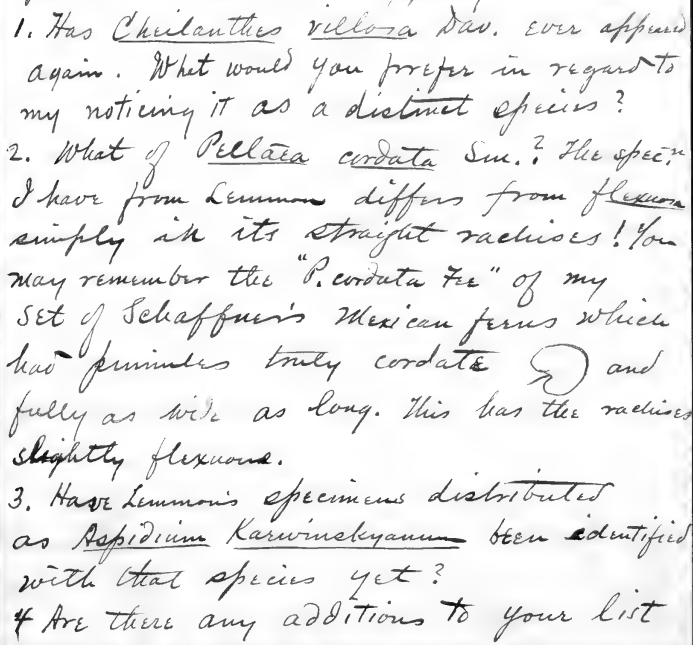 1. Has Cheilanthes villosa Dav. ever appeared
again. What would you prefer in regard to
my noticing it as a distinct species?
2. What of Pellaea cordata Sm.? The specn.
I have from Lemmon differs from flexuosa
simply in its straight rachises! You
may remember the "P. cordata Fee" of my
set of Schaffner's Mexican ferns which
had pinnules truly cordate and
fully as wide as long. This has the rachises
slightly flexuous.
3. Have Lemmon's specimens distributed
as Aspidium Karwinskyanum been identified
with that species yet?
4 Are there any additions to your list